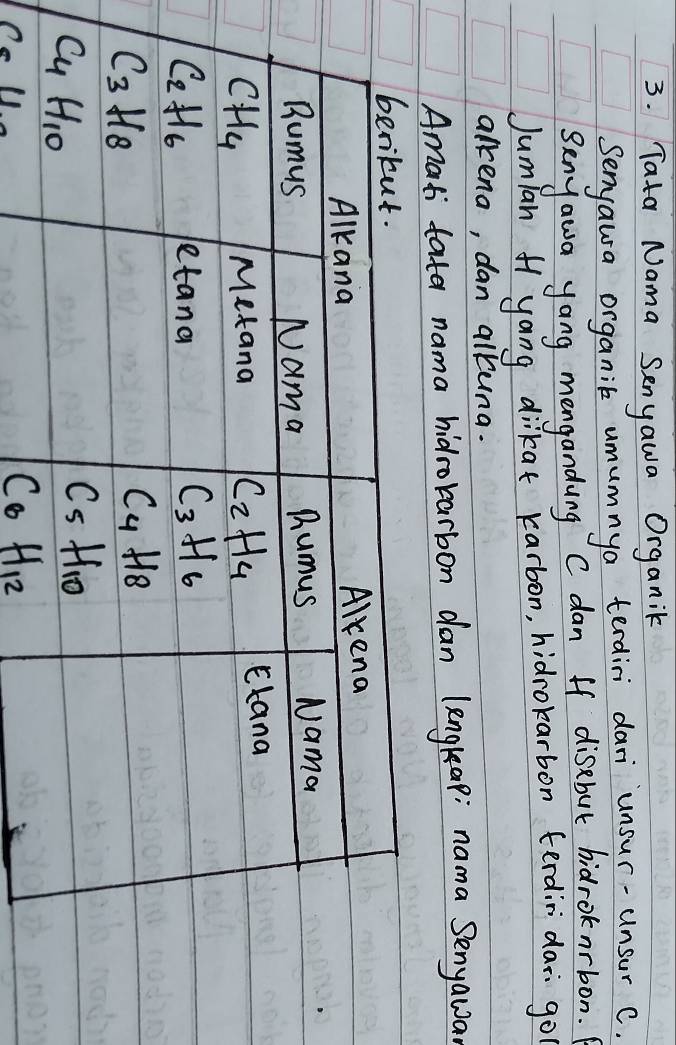 3. Tata Nama Senyawa Organik
Senyawa organik umumnya terdiri dari unsur-unsur C.
Senyawa yang mengandung C dan H disebut hidroknrbon.
Jumlah H yang diikat karbon, hidrokarbon terdiri dari gol
alkena, dan alkuna.
Amati tata nama hidrokarbon dan lengkapi nama Senyawa
berikut.
Alkana Alkena
Rumus Nama Rumus Nama
CH4 Metana C2H4 Etana
C2H6 etana C3H6
C3H8 C4H8
C4H10 C5H10
C6H12